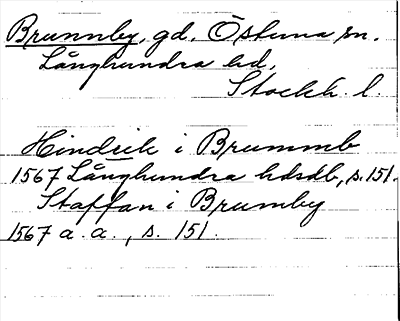 Brunnby, gd. Östuna sn.
Långhundra hd,
Stockh. l.
Hindrik i Brummb
1567 Långhundra hdsdb, s. 151.
Staffan i Brumby
1567 a. a., s. 151.